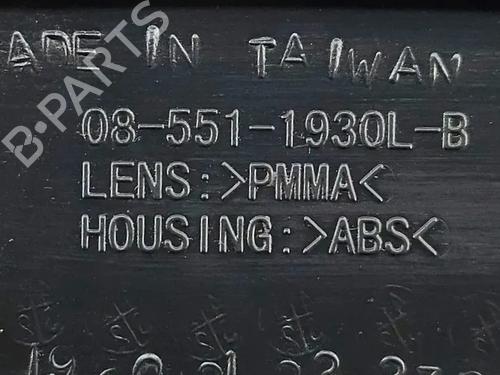 ADE IN TAIWAN
08-551-1930L-B
LENS:>PMMA<
HOUSING:>ABS<
B-PARTS